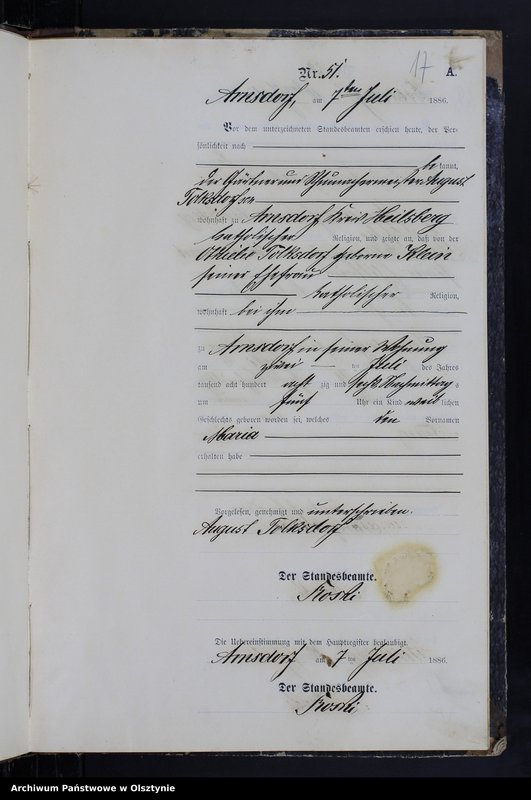 17
Nr. 51. A.
Arnsdorf, am 7ten Juli 1886.
Vor dem unterzeichneten Standesbeamten erschien heute, der Per-
sönlichkeit nach
be kannt,
der Gärtner und Schuhmachermeister August
Tolksdorf
wohnhaft zu Arnsdorf Kreis Heilsberg
katholischer Religion, und zeigte an, daß von der
Ottilie Tolksdorf geborne Klein
seiner Ehefrau
katholischer Religion,
wohnhaft bei ihm
zu Arnsdorf in seiner Wohnung
am zwei ten Juli des Jahres
tausend acht hundert acht zig und sechs Nachmittags
um fünf Uhr ein Kind weib lichen
Geschlechts geboren worden sei, welches den Vornamen
Maria
erhalten habe
Vorgelesen, genehmigt und unterschrieben.
August Tolksdorf
Der Standesbeamte.
Die Uebereinstimmung mit dem Hauptregister beglaubigt.
Arnsdorf am 7 ten Juli 1886.
Der Standesbeamte.
Archiwum Państwowe w Olsztynie